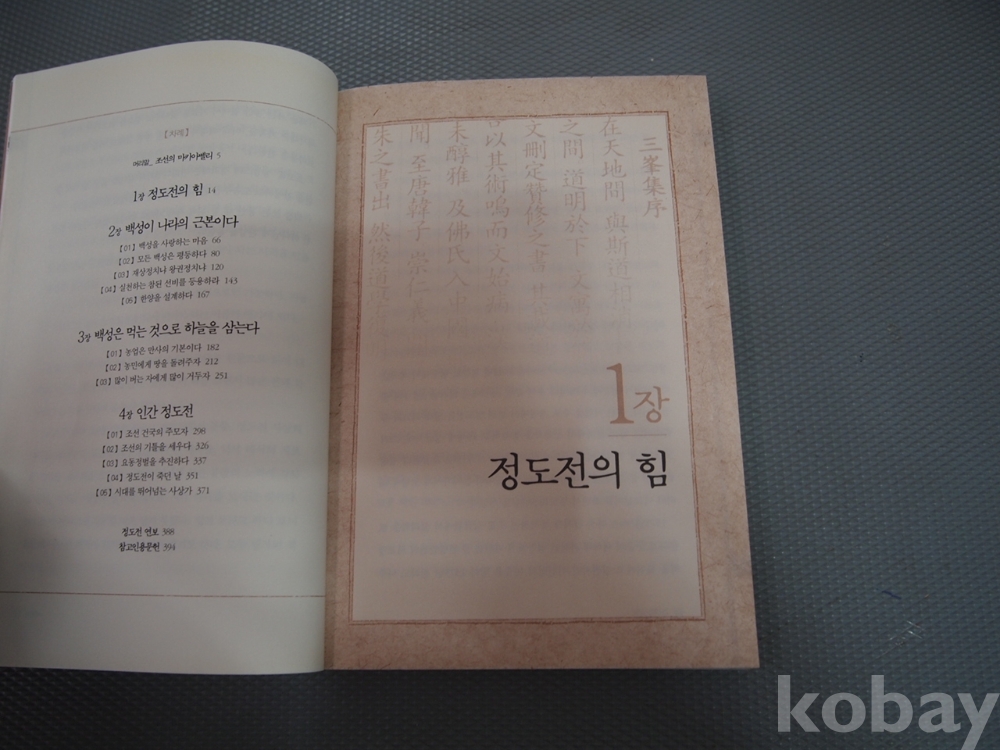 【차례】
머리말_ 조선의 마키아벨리 5
1장 정도전의 힘 14
2장 백성이 나라의 근본이다
【01】백성을 사랑하는 마음 66
【02】모든 백성은 평등하다 80
【03】재상정치냐 왕권정치냐 120
【04】실천하는 참된 선비를 등용하라 143
【05】한양을 설계하다 167
3장 백성은 먹는 것으로 하늘을 삼는다
【01】농업은 만사의 기본이다 182
【02】농민에게 땅을 돌려주자 212
【03】많이 버는 자에게 많이 거두자 251
4장 인간 정도전
【01】조선 건국의 주모자 298
【02】조선의 기틀을 세우다 326
【03】요동정벌을 추진하다 337
【04】정도전이 죽던 날 351
【05】시대를 뛰어넘는 사상가 371
정도전 연보 388
참고인용문헌 394
三峯集序
在天地間 與斯道相
之間 道明於下
文刪定贊修之書
以其術鳴而文
未醇雅 及佛氏入中
聞 至唐韓子 崇仁
朱之書出 然後道
1장
정도전의 힘
kobay